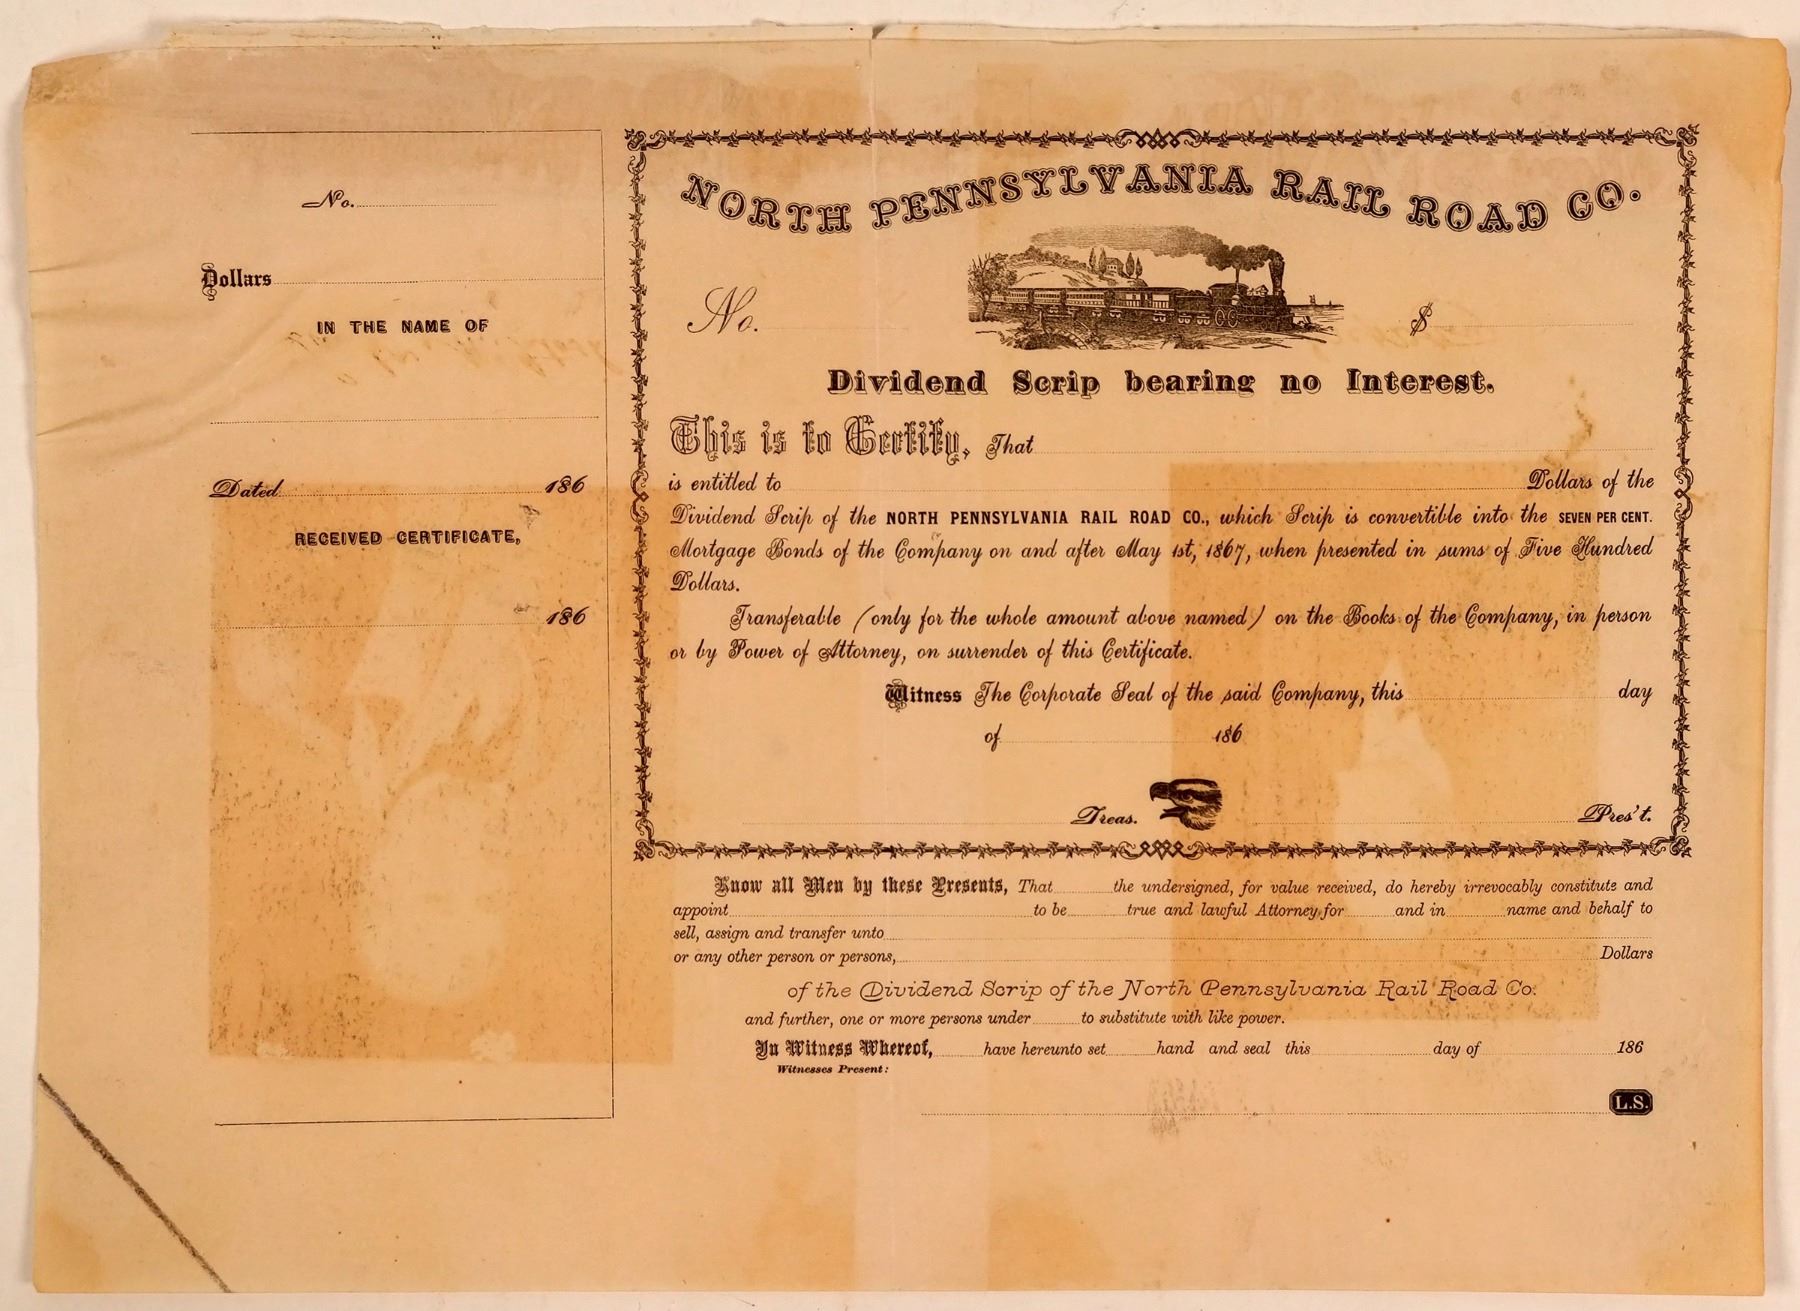 No.
Dollars
IN THE NAME OF
Dated 186
RECEIVED CERTIFICATE,
186
NORTH PENNSYLVANIA RAIL ROAD CO.
No. $
Dividend Scrip bearing no Interest.
This is to Certify, That
is entitled to Dollars of the
Dividend Scrip of the NORTH PENNSYLVANIA RAIL ROAD CO., which Scrip is convertible into the SEVEN PER CENT.
Mortgage Bonds of the Company on and after May 1st, 1867, when presented in sums of Five Hundred
Dollars.
Transferable (only for the whole amount above named) on the Books of the Company, in person
or by Power of Attorney, on surrender of this Certificate.
Witness The Corporate Seal of the said Company, this day
of 186
Treas. Pres't.
Know all Men by these Presents, That the undersigned, for value received, do hereby irrevocably constitute and
appoint to be true and lawful Attorney for and in name and behalf to
sell, assign and transfer unto
or any other person or persons, Dollars
of the Dividend Scrip of the North Pennsylvania Rail Road Co.
and further, one or more persons under to substitute with like power.
In Witness Whereof, have hereunto set hand and seal this day of 186
Witnesses Present:
L.S.